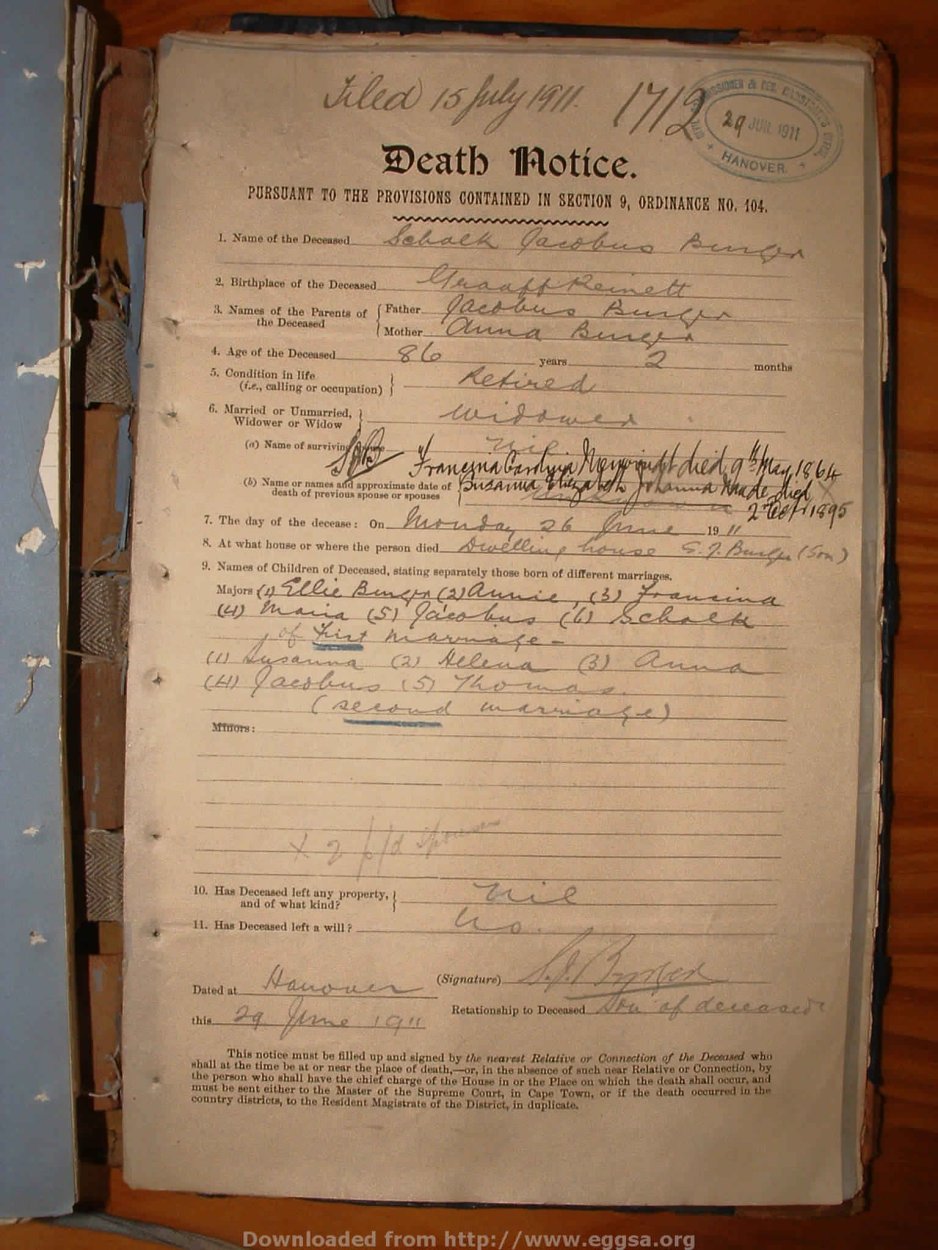 Filed 15 July 1911. 1712
29 JUN 1911
HANOVER.
Death Notice.
PURSUANT TO THE PROVISIONS CONTAINED IN SECTION 9, ORDINANCE NO. 104.
1. Name of the Deceased Schalk Jacobus Burger
2. Birthplace of the Deceased Graaff Reinett
3. Names of the Parents of the Deceased { Father Jacobus Burger
Mother Anna Burger
4. Age of the Deceased 86 years 2 months
5. Condition in life (i.e., calling or occupation) } Retired
6. Married or Unmarried, Widower or Widow } Widower
(a) Name of surviving Nil
Francina Carolina died 9th May 1864
(b) Name or names and approximate date of death of previous spouse or spouses { Susanna Elizabeth Johanna died
2 Oct 1895
7. The day of the decease: On Monday 26 June 1911
8. At what house or where the person died Dwelling house S. J. Burger (Son)
9. Names of Children of Deceased, stating separately those born of different marriages.
Majors (1) Ellie Burger (2) Annie, (3) Francina
(4) Maria (5) Jacobus (6) Schalk
of First marriage -
(1) Susanna (2) Helena (3) Anna
(4) Jacobus (5) Thomas.
(second marriage)
Minors:
x 2 p/d spouses
10. Has Deceased left any property, and of what kind? } Nil
11. Has Deceased left a will? No.
(Signature) S. J. Burger
Dated at Hanover
Relationship to Deceased Son of deceased
this 29 June 1911
This notice must be filled up and signed by the nearest Relative or Connection of the Deceased who
shall at the time be at or near the place of death,—or, in the absence of such near Relative or Connection, by
the person who shall have the chief charge of the House in or the Place on which the death shall occur, and
must be sent either to the Master of the Supreme Court, in Cape Town, or if the death occurred in the
country districts, to the Resident Magistrate of the District, in duplicate.
Downloaded from http://www.eggsa.org